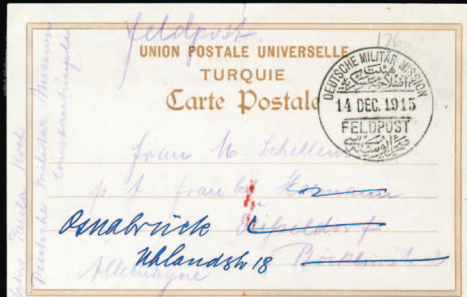 Feldpost
176
UNION POSTALE UNIVERSELLE
TURQUIE
Carte Postale
DEUTSCHE MILITÄR MISSION
14 DEC. 1915
FELDPOST
Frau M Schellen
p t Frau
Osnabrück Düsseldorf
Uhlandstr 18
Allemagne
Paula Koch
Deutsche Militär Mission
Constantinople